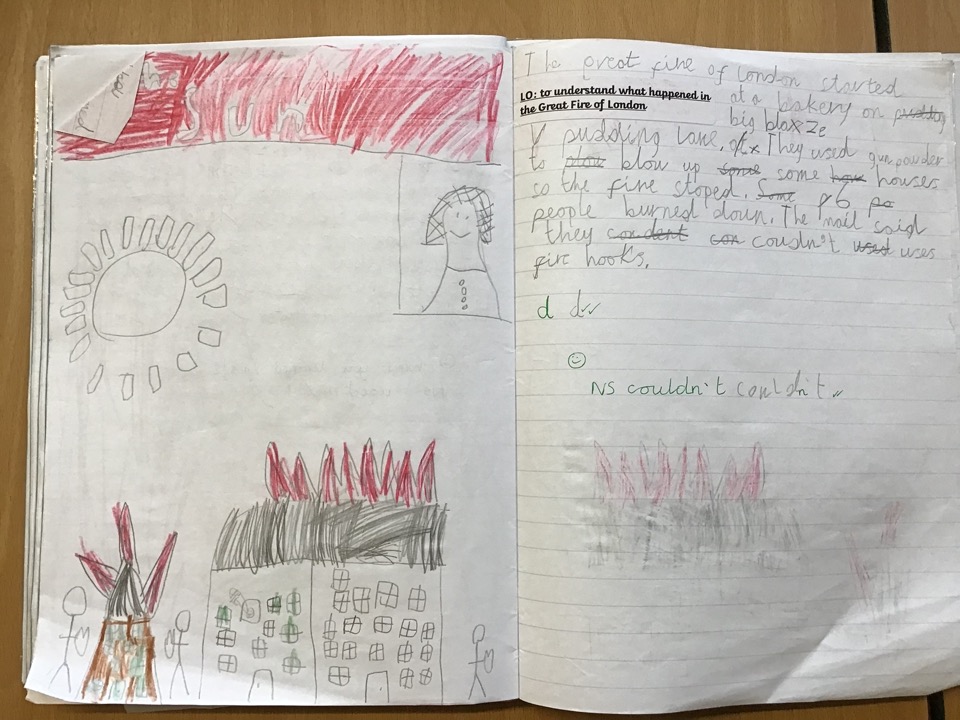 the
Sun
The great fire of London started
LO: to understand what happened in
the Great Fire of London
at a bakery on pudding
big blaxze
pudding lane. They used gunpowder
to blow up some some how houses
so the fire stoped. Some 6
people burned down. The mail said
they con couldn't used uses
fire hooks.
d d
NS couldn't couldn't